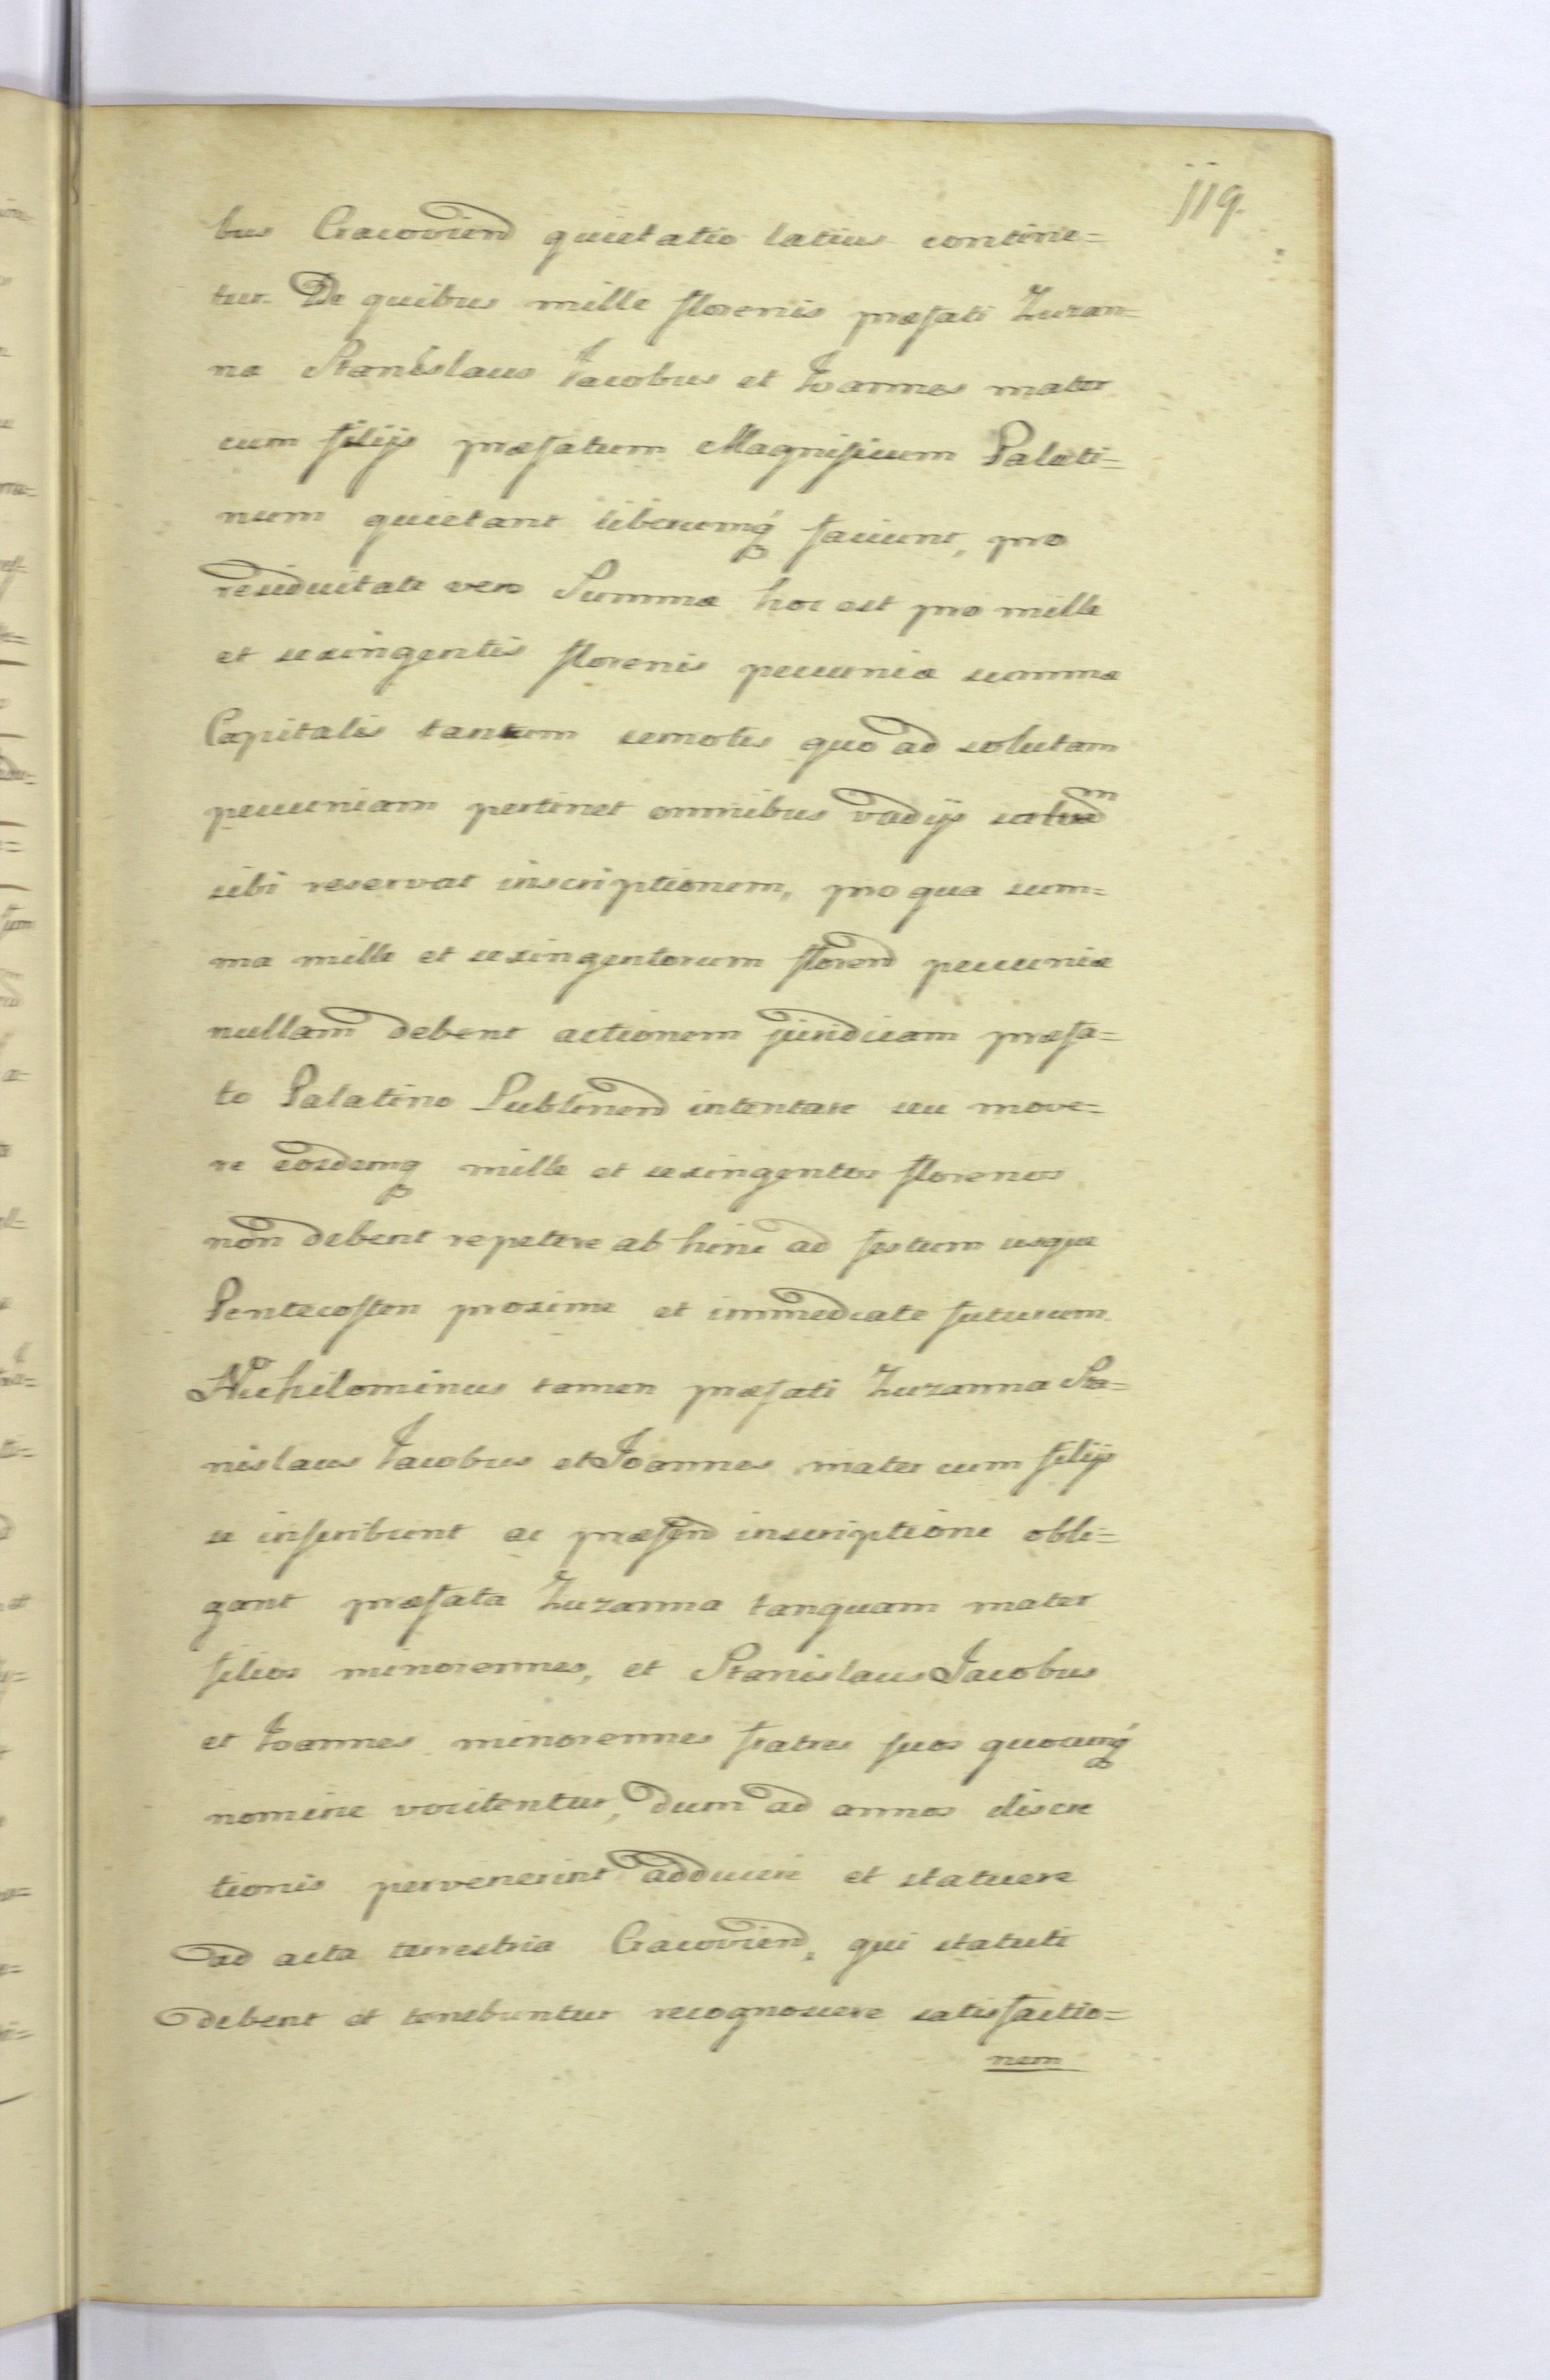 119.
bus Cracovien quietatio latius contine=
tur. De quibus mille florenis præfati Zuzan=
na Stanislaus Jacobus et Joannes mater
cum filijs præfatum Magnificum Palati=
num quietant liberumq faciunt, pro
residuitate vero Summæ hoc est pro mille
et sexingentis florenis pecuniæ summæ
Capitalis tantum semotis quo ad solutam
pecuniam pertinet omnibus vadijs
sibi reservat inscriptionem, pro qua sum=
ma mille et sexingentorum floren pecuniæ
nullam debent actionem juridicam præfa=
to Palatino Lublinen intentare seu move=
re eosdemq mille et sexingentos florenos
non debent repetere ab hinc ad festum usque
Pentecosten proxime et immediate futurum.
Nichilominus tamen præfati Zuzanna Sta=
nislaus Jacobus et Joannes mater cum filijs
se inscribunt ac præsen inscriptione obli=
gant præfata Zuzanna tanquam mater
filios minorennes, et Stanislaus Jacobus
et Joannes minorennes fratres suos quocunq
nomine vocitentur, dum ad annos discre
tionis pervenerint adducere et statuere
ad acta terrestria Cracovien, qui statuti
debent et tenebuntur recognoscere satisfactio=
nem